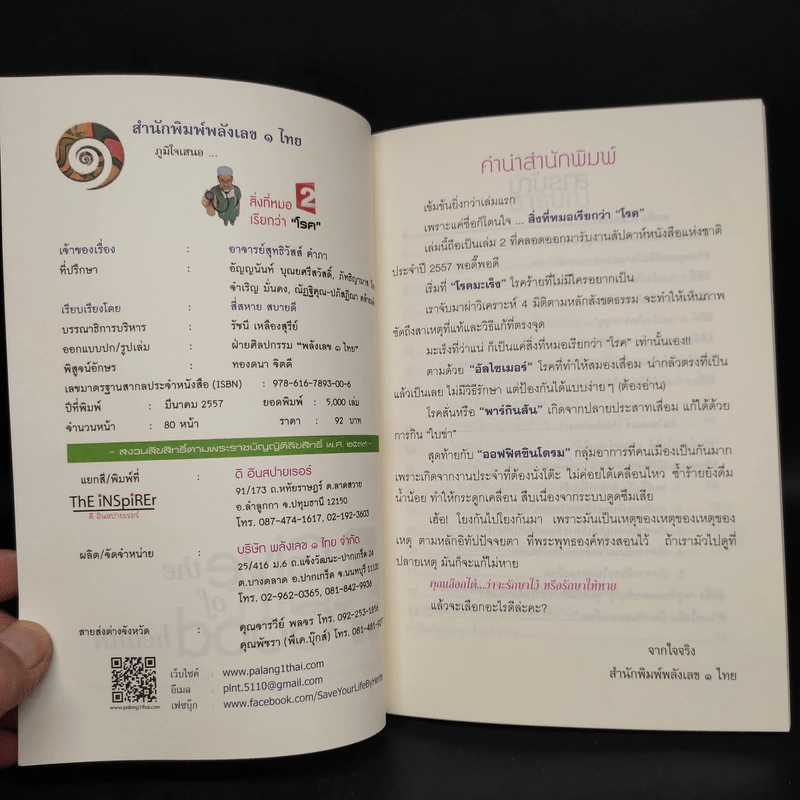 สำนักพิมพ์พลังเลข ๑ ไทย
ภูมิใจเสนอ ...
สิ่งที่หมอ 2
เรียกว่า "โรค"
เจ้าของเรื่อง : อาจารย์สุทธิวัสส์ คำภา
ที่ปรึกษา : อัญญนันท์ บุณยศรีสวัสดิ์,
จำเริญ มั่นคง,
เรียบเรียงโดย : สี่สหาย สบายดี
บรรณาธิการบริหาร : รัชนี เหลืองสุรีย์
ออกแบบปก/รูปเล่ม : ฝ่ายศิลปกรรม "พลังเลข ๑ ไทย"
พิสูจน์อักษร : ทองดนา จิตดี
เลขมาตรฐานสากลประจำหนังสือ (ISBN) : 978-616-7893-00-6
ปีที่พิมพ์ : มีนาคม 2557 ยอดพิมพ์ : 5,000 เล่ม
จำนวนหน้า : 80 หน้า ราคา : 92 บาท
- สงวนลิขสิทธิ์ตามพระราชบัญญัติลิขสิทธิ์ พ.ศ. ๒๕๓๗ -
แยกสี/พิมพ์ที่ : ดิ อินสปายเรอร์
ThE iNSpiREr
ดิ อินสปายเรอร์
91/173 ถ.หทัยราษฎร์ ต.ลาดสวาย
อ.ลำลูกกา จ.ปทุมธานี 12150
โทร. 087-474-1617, 02-192-3603
ผลิต/จัดจำหน่าย : บริษัท พลังเลข ๑ ไทย จำกัด
25/416 ม.6 ถ.แจ้งวัฒนะ-ปากเกร็ด 24
ต.บางตลาด อ.ปากเกร็ด จ.นนทบุรี 11120
โทร. 02-962-0365, 081-842-9936
สายส่งต่างจังหวัด : คุณจารวีย์ พลจร โทร. 092-253-1896
คุณพัชรา (พี.เค.บุ๊กส์) โทร.
เว็บไซต์ : www.palang1thai.com
อีเมล : plnt.5110@gmail.com
เฟซบุ๊ก : www.facebook.com/SaveYourLifeByHerbs
www.palang1thai.com
คำนำสำนักพิมพ์
เข้มข้นยิ่งกว่าเล่มแรก
เพราะแค่ชื่อก็โดนใจ ... สิ่งที่หมอเรียกว่า "โรค"
เล่มนี้ถือเป็นเล่ม 2 ที่คลอดออกมารับงานสัปดาห์หนังสือแห่งชาติ
ประจำปี 2557 พอดิ๊พอดี
เริ่มที่ "โรคมะเร็ง" โรคร้ายที่ไม่มีใครอยากเป็น
เราจับมาผ่าวิเคราะห์ 4 มิติตามหลักสังขตธรรม จะทำให้เห็นภาพ
ชัดถึงสาเหตุที่แท้และวิธีแก้ที่ตรงจุด
มะเร็งที่ว่าแน่ ก็เป็นแค่สิ่งที่หมอเรียกว่า "โรค" เท่านั้นเอง!!
ตามด้วย "อัลไซเมอร์" โรคที่ทำให้สมองเสื่อม น่ากลัวตรงที่เป็น
แล้วเป็นเลย ไม่มีวิธีรักษา แต่ป้องกันได้แบบง่ายๆ (ต้องอ่าน)
โรคสั่นหรือ "พาร์กินสัน" เกิดจากปลายประสาทเสื่อม แก้ได้ด้วย
การกิน "ใบข่า"
สุดท้ายกับ "ออฟฟิศซินโดรม" กลุ่มอาการที่คนเมืองเป็นกันมาก
เพราะเกิดจากงานประจำที่ต้องนั่งโต๊ะ ไม่ค่อยได้เคลื่อนไหว ซ้ำร้ายยังดื่ม
น้ำน้อย ทำให้กระดูกเคลื่อน สืบเนื่องจากระบบดูดซึมเสีย
เฮ้อ! โยงกันไปโยงกันมา เพราะมันเป็นเหตุของเหตุของเหตุของ
เหตุ ตามหลักอิทัปปัจจยตา ที่พระพุทธองค์ทรงสอนไว้ ถ้าเรามัวไปดูที่
ปลายเหตุ มันก็จะแก้ไม่หาย
คุณเลือกได้...ว่าจะรักษาไว้ หรือรักษาให้หาย
แล้วจะเลือกอะไรดีล่ะคะ?
จากใจจริง
สำนักพิมพ์พลังเลข ๑ ไทย